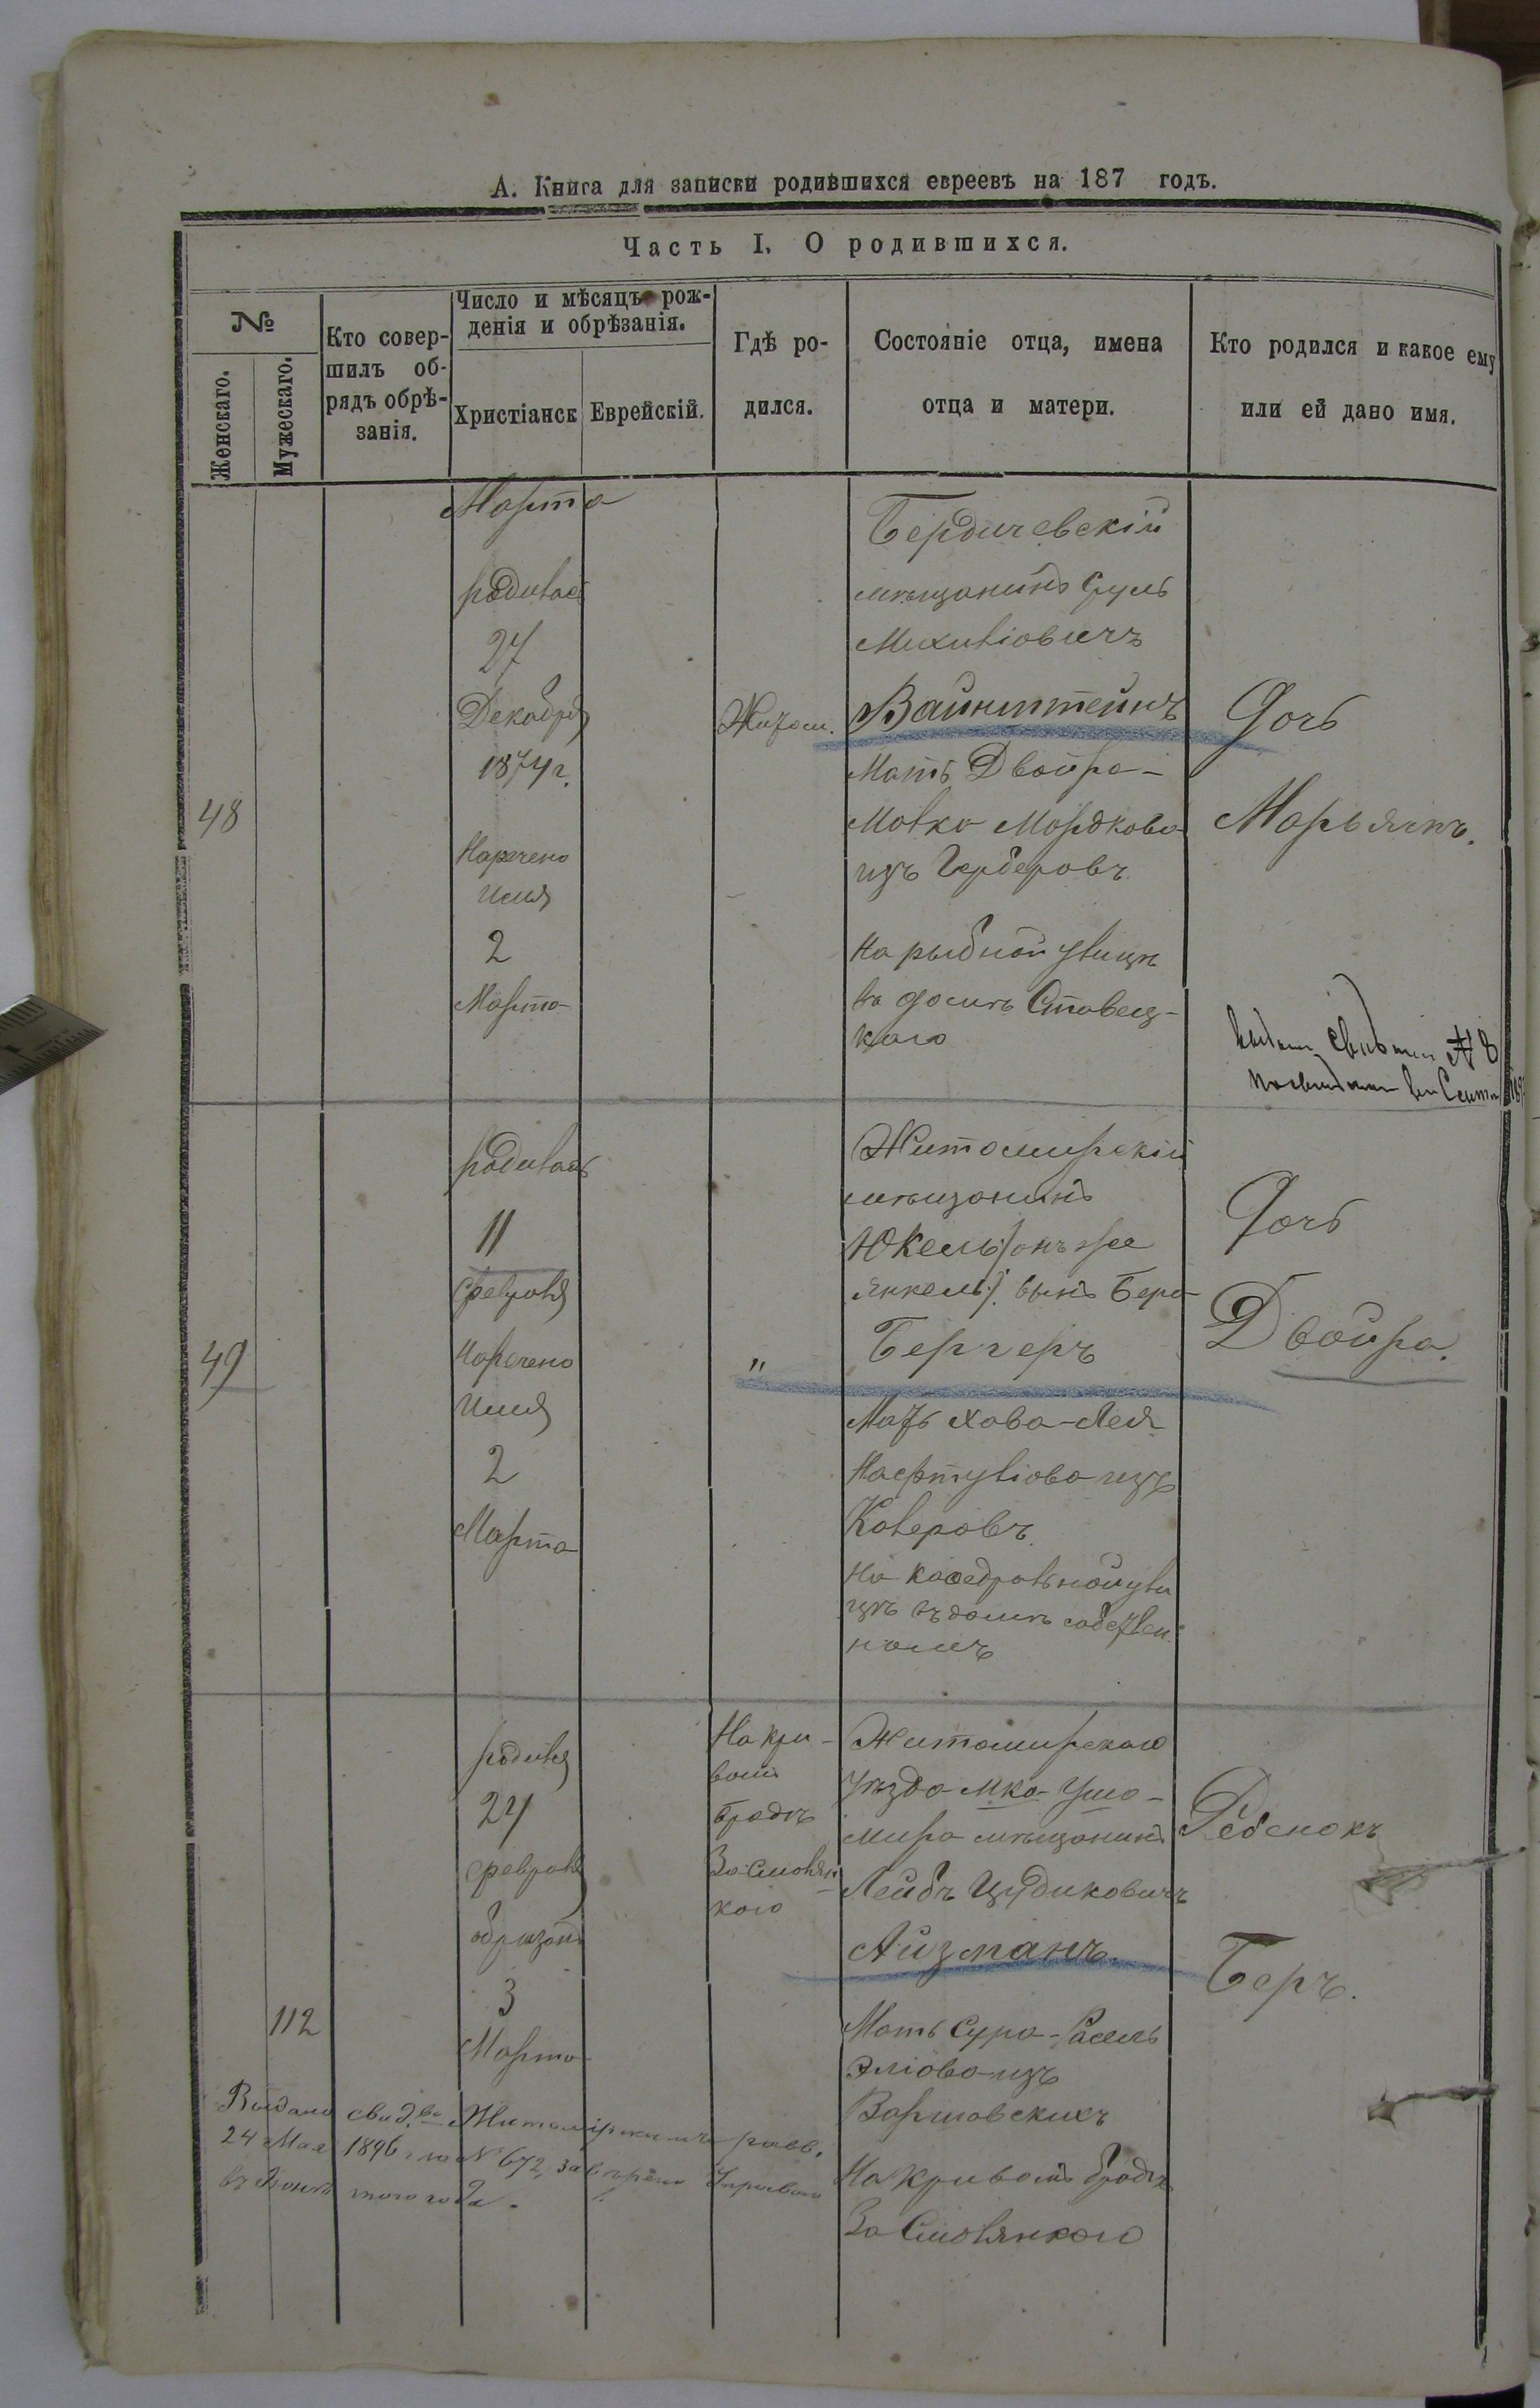 А. Книга для записки родившихся евреевъ на 187 годъ.
Часть I. О родившихся.
№
Женскаго.
Мужескаго.
Кто совер-
шилъ об-
рядъ обрѣ-
занія.
Число и мѣсяцъ рож-
денія и обрѣзанія.
Христіанск
Еврейскій.
Гдѣ ро-
дился.
Состояніе отца, имена
отца и матери.
Кто родился и какое ему
или ей дано имя.
48
Марта
родилась
27
Декабря
1874 г.
Наречено
имя
2
Марта
Житом.
Бердичевскій
мѣщанинъ Сруль
Михиліовичъ
Вайнштейнъ
Мать Двойра-
Малка Мордкова
изъ Герберовъ
На рыбной улицѣ
въ домѣ Ставец-
каго
Дочь
Марьямъ.
49
родилась
11
Февраля
Наречено
имя
2
Марта
"
Житомирскій
мѣщанинъ
Юкель /онъ же
Янкель/. сынъ Бера
Бергеръ
Мать Хава-Лея
Нафтуліова изъ
Калеровъ.
На каѳедральной ули
цѣ въ домѣ собствен
номъ
Дочь
Двойра.
112
родился
24
Февраля
обрѣзанъ
3
Марта
На кри-
вомъ
бродѣ
За Смолян
кою
Житомирскаго
уѣзда м-ка Ушо-
мира мѣщанинъ
Лейбъ Цудиковичъ
Айзманъ.
Мать Сура-Расель
Эліова изъ
Варшавскихъ
На кривомъ бродѣ
За Смолянкою
Ребенокъ
Беръ.
Выдано свид.во Житомірскимъ равв.
24 Мая 1896 г. за № 672, завѣрено Управою
въ того года.